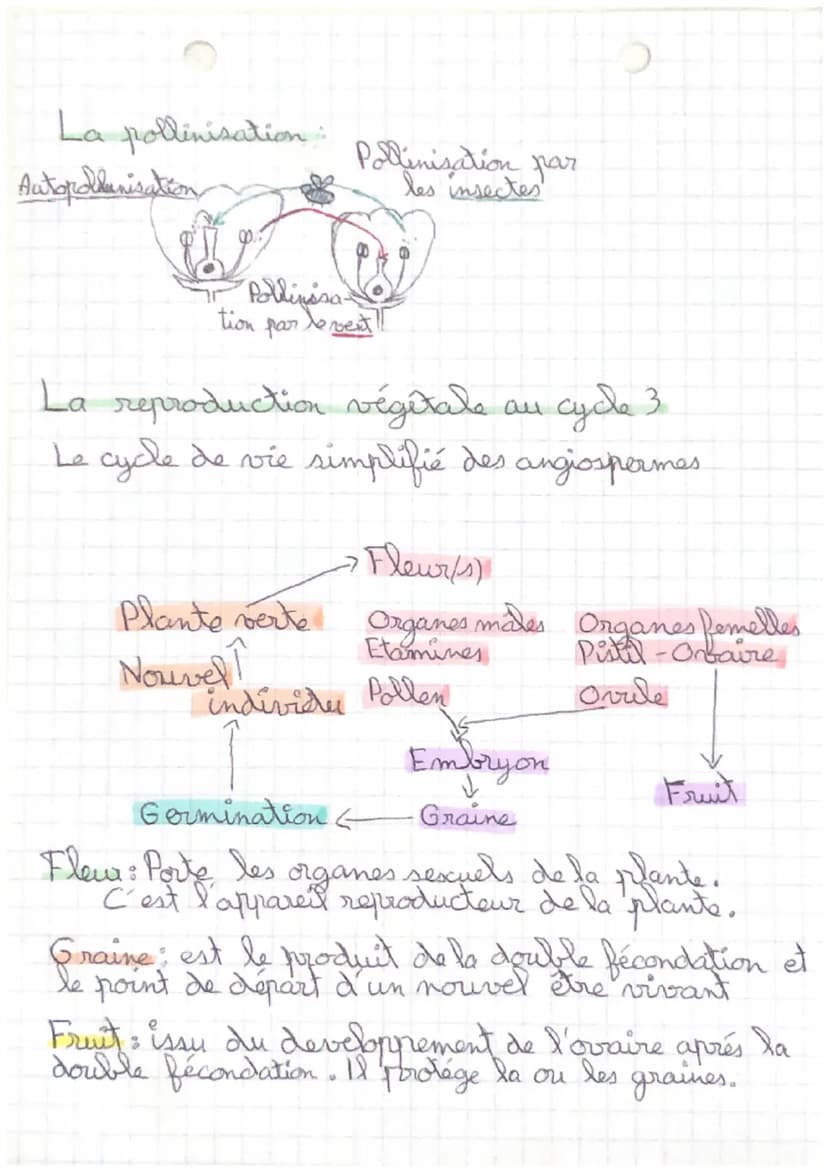 La pollinisation :
Pollinisation par
les insectes
Autopollinisation
Pollinisa-
tion par le vent
La reproduction végétale au cycle 3
Le cycle de vie simplifié des angiospermes
Fleur(s)
Plante verte
Organes mâles
Organes femelles
Etamines
Pistil - Ovaire
Nouvel
individu
Pollen
Ovule
Embryon
Fruit
Germination
Graine
Fleur : Porte les organes sexuels de la plante.
C'est l'appareil reproducteur de la plante.
Graine : est le produit de la double fécondation et
le point de départ d'un nouvel être vivant
Fruit : issu du developpement de l'ovaire aprés la
double fécondation. Il protége la ou les graines.